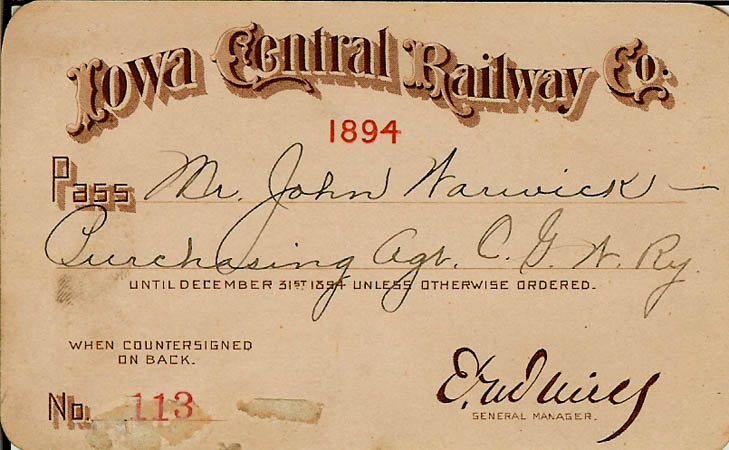 Iowa Central Railway Co.
1894
Pass Mr. John Warwick —
Purchasing Agt. C. G. W. Ry.
UNTIL DECEMBER 31ST 1894 UNLESS OTHERWISE ORDERED.
WHEN COUNTERSIGNED
ON BACK.
No. 113
GENERAL MANAGER.